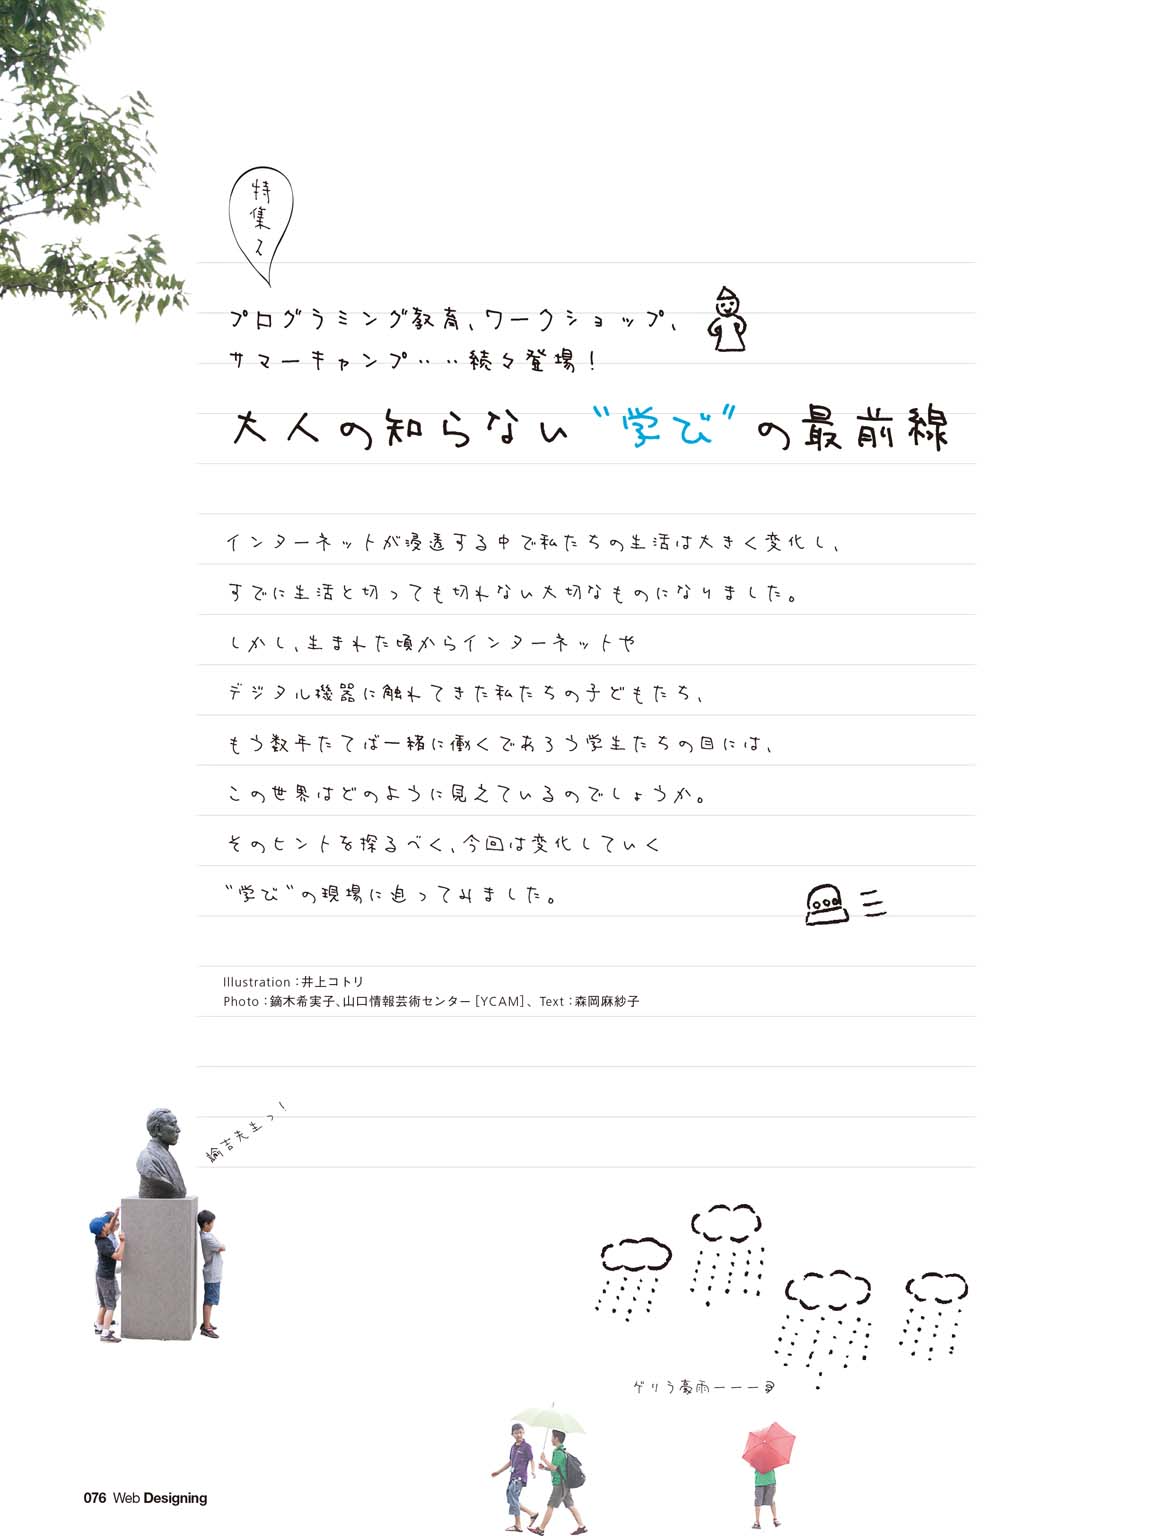 特集2
プログラミング教育、ワークショップ、
サマーキャンプ‥‥続々登場！
大人の知らない“学び”の最前線
インターネットが浸透する中で私たちの生活は大きく変化し、
すでに生活と切っても切れない大切なものになりました。
しかし、生まれた頃からインターネットや
デジタル機器に触れてきた私たちの子どもたち、
もう数年たてば一緒に働くであろう学生たちの目には、
この世界はどのように見えているのでしょうか。
そのヒントを探るべく、今回は変化していく
“学び”の現場に迫ってみました。
Illustration：井上コトリ
Photo：鏑木希実子、山口情報芸術センター［YCAM］、Text：森岡麻紗子
諭吉先生っ！
ゲリラ豪雨ーーー
076 Web Designing